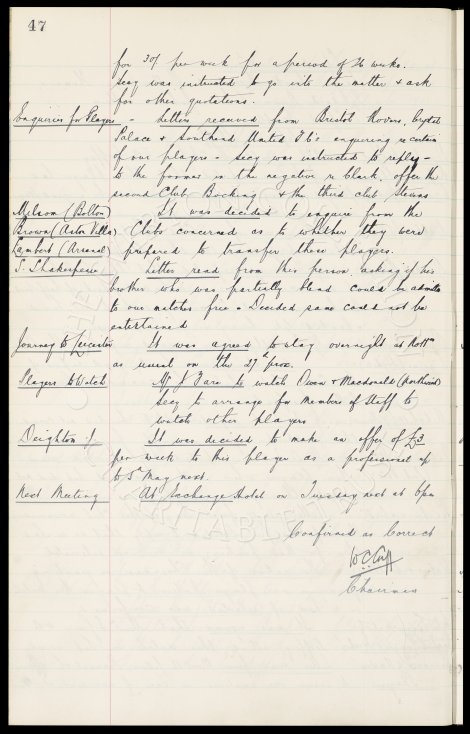 47
for 30/- per week for a period of 26 weeks.
Secy was instructed to go into the matter & ask
for other quotations.
Enquiries for Players - Letters received from Bristol Rovers, Crystal
Palace & Southend United F.C's enquiring re certain
of our players - Secy was instructed to reply -
to the former in the negative re Clark, offer the
second Club Bocking & the third club Stevens
Milsom (Bolton) It was decided to enquire from the
Brown (Aston Villa) Clubs concerned as to whether they were
Lambert (Arsenal) prepared to transfer these players.
T. Shakespeare Letter read from this person asking if his
brother who was partially blind could be admitted
to our matches free - Decided same could not be
entertained
Journey to Leicester It was agreed to stay overnight at Nottm
as usual on the 27th prox.
Players to Watch Mr J Fare to watch Owen & Macdonald (Northwich)
Secy to arrange for Members of Staff to
watch other players
Deighton J It was decided to make an offer of £3
per week to this player as a professional up
to 5th May next.
Next Meeting At Exchange Hotel on Tuesday next at 6pm
Confirmed as Correct
W.C. Cuff
Chairman